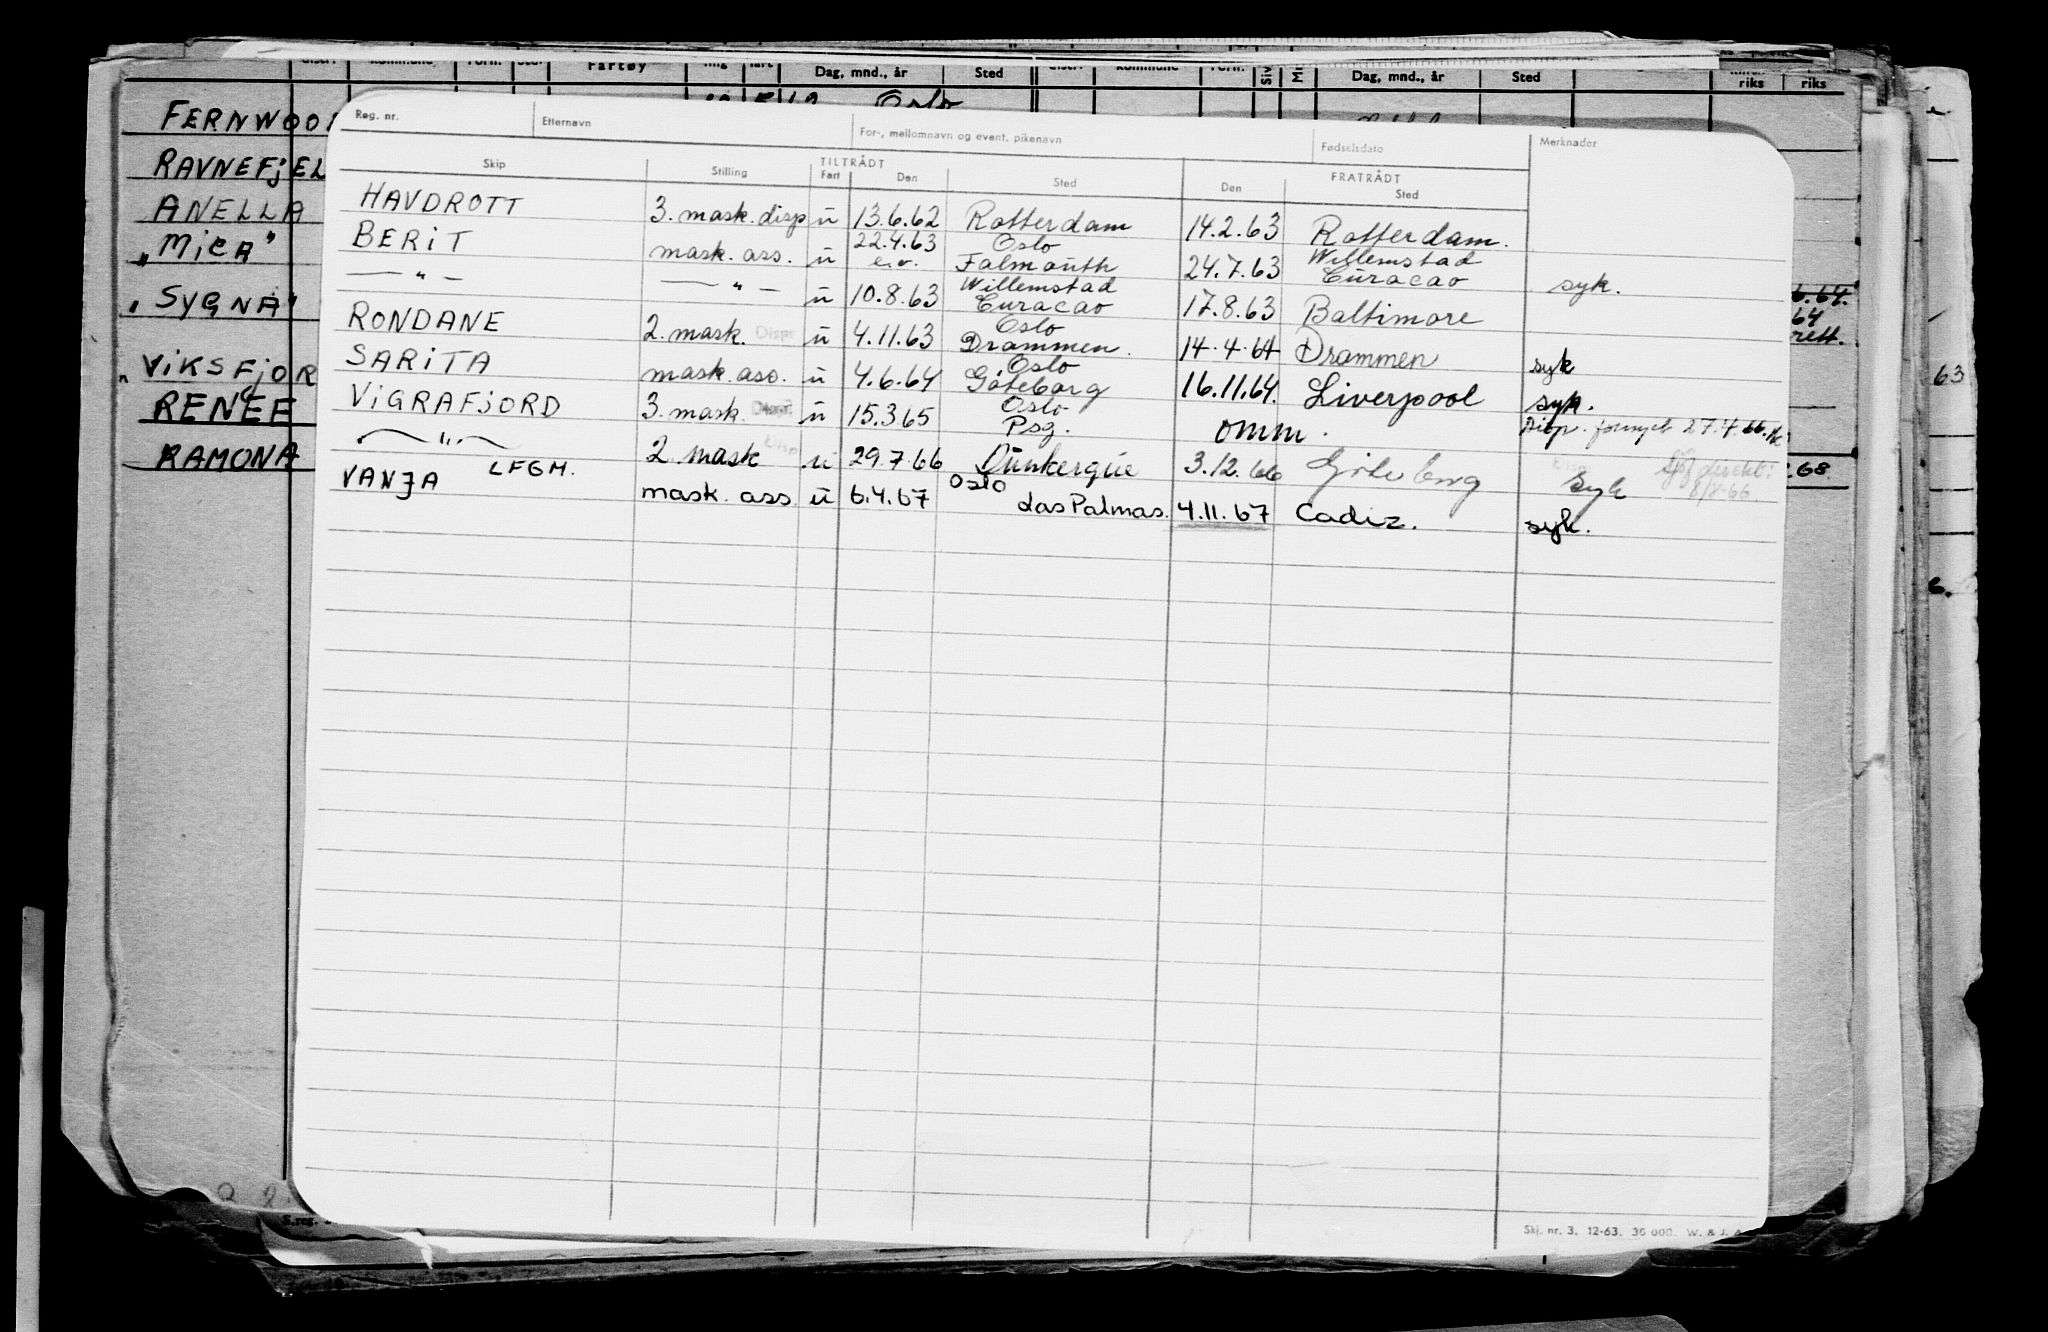 Fartøy Dag, mnd., år Sted Dag, mnd., år Sted riks riks
FERNWOO
RAVNEFJEL
ANELLA
"MICA"
"SYGNA"
VIKSFJOR
RENEE
RAMONA
Reg. nr. Etternavn For-, mellomnavn og event. pikenavn Fødselsdato Merknader
Skip Stilling TILTRÅDT FRATRÅDT
Fart Den Sted Den Sted
HAVDROTT 3. mask. disp u 13.6.62 Rotterdam 14.2.63 Rotterdam.
BERIT mask. ass. u 22.4.63 e.o. Oslo Falmouth 24.7.63 Willemstad Curacao syk.
— " — — " — u 10.8.63 Willemstad Curacao 17.8.63 Baltimore
RONDANE 2. mask. Disp u 4.11.63 Oslo Drammen. 14.4.64 Drammen syk
SARITA mask. ass. u 4.6.64 Oslo Göteborg 16.11.64. Liverpool syk.
VIGRAFJORD 3. mask. Disp. u 15.3.65 Oslo Psg. omm. Disp. fornyet 27.4.66.
— " — LFGM. 2. mask Disp u 29.7.66 Dunkerque 3.12.66 Göteborg Syk 8/8-66
VANJA mask. ass. u 6.4.67 Oslo Las Palmas. 4.11.67 Cadiz. syk.
6.64.
64
rett.
68.
63
6.
S.reg.
Skj. nr. 3. 12-63. 30 000. W. & J. A